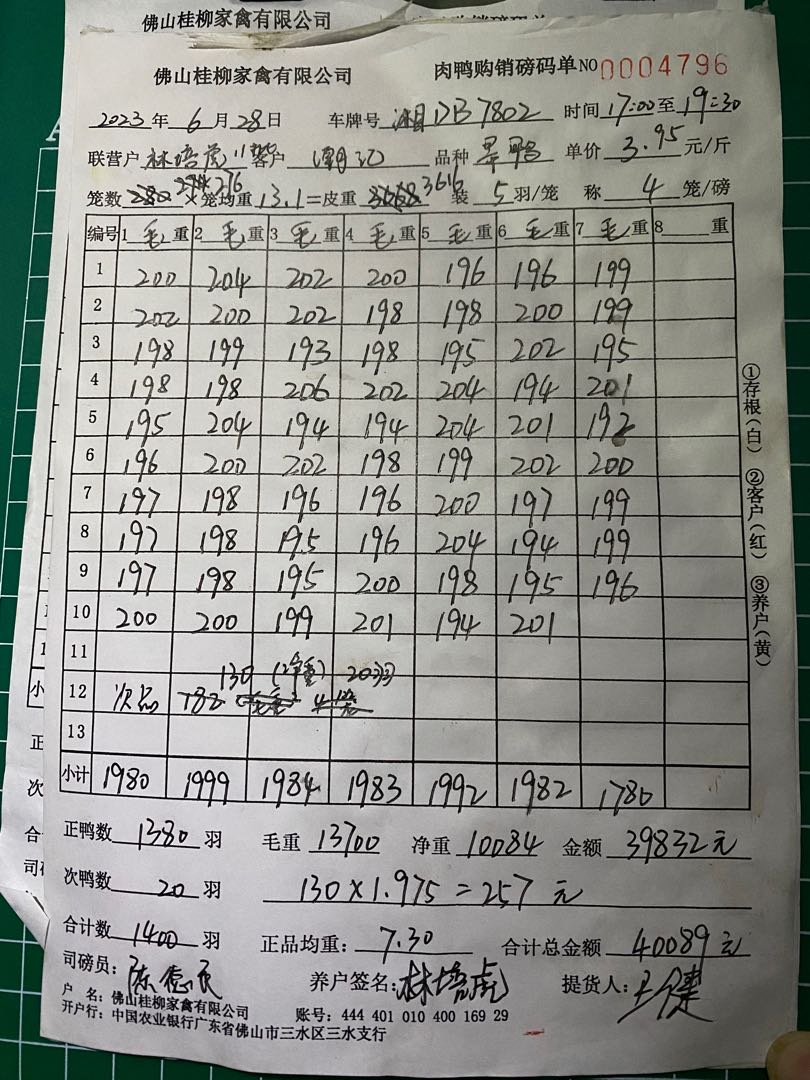 佛山桂柳家禽有限公司
佛山桂柳家禽有限公司 肉鸭购销磅码单 NO 0004796
2023年 6 月 28 日 车牌号 湘DB7802 时间 17:00 至 19:30
联营户 林培虎 客户 潮记 品种 单价 3.95 元/斤
笼数 276 ×笼均重 13.1 =皮重 3616 装 5 羽/笼 称 4 笼/磅
编号 1 毛 重 2 毛 重 3 毛 重 4 毛 重 5 毛 重 6 毛 重 7 毛 重 8 重
1 200 204 202 200 196 196 199
2 202 200 202 198 198 200 199
3 198 199 193 198 195 202 195
4 198 198 206 202 204 194 201
5 195 204 194 194 204 201 192
6 196 200 202 198 199 202 200
7 197 198 196 196 200 197 199
8 197 198 195 196 204 194 199
9 197 198 195 200 198 195 196
10 200 200 199 201 194 201
11
130 (净重) 20羽
12 次品 182 毛重 4笼
13
小计 1980 1999 1984 1983 1992 1982 1780
正鸭数 1380 羽 毛重 13700 净重 10084 金额 39832元
次鸭数 20 羽 130×1.975=257 元
合计数 1400 羽 正品均重: 7.30 合计总金额 40089元
司磅员: 养户签名: 林培虎 提货人:
户 名: 佛山桂柳家禽有限公司 账号: 444 401 010 400 169 29
开户行: 中国农业银行广东省佛山市三水区三水支行
①存根(白) ②客户(红) ③养户(黄)